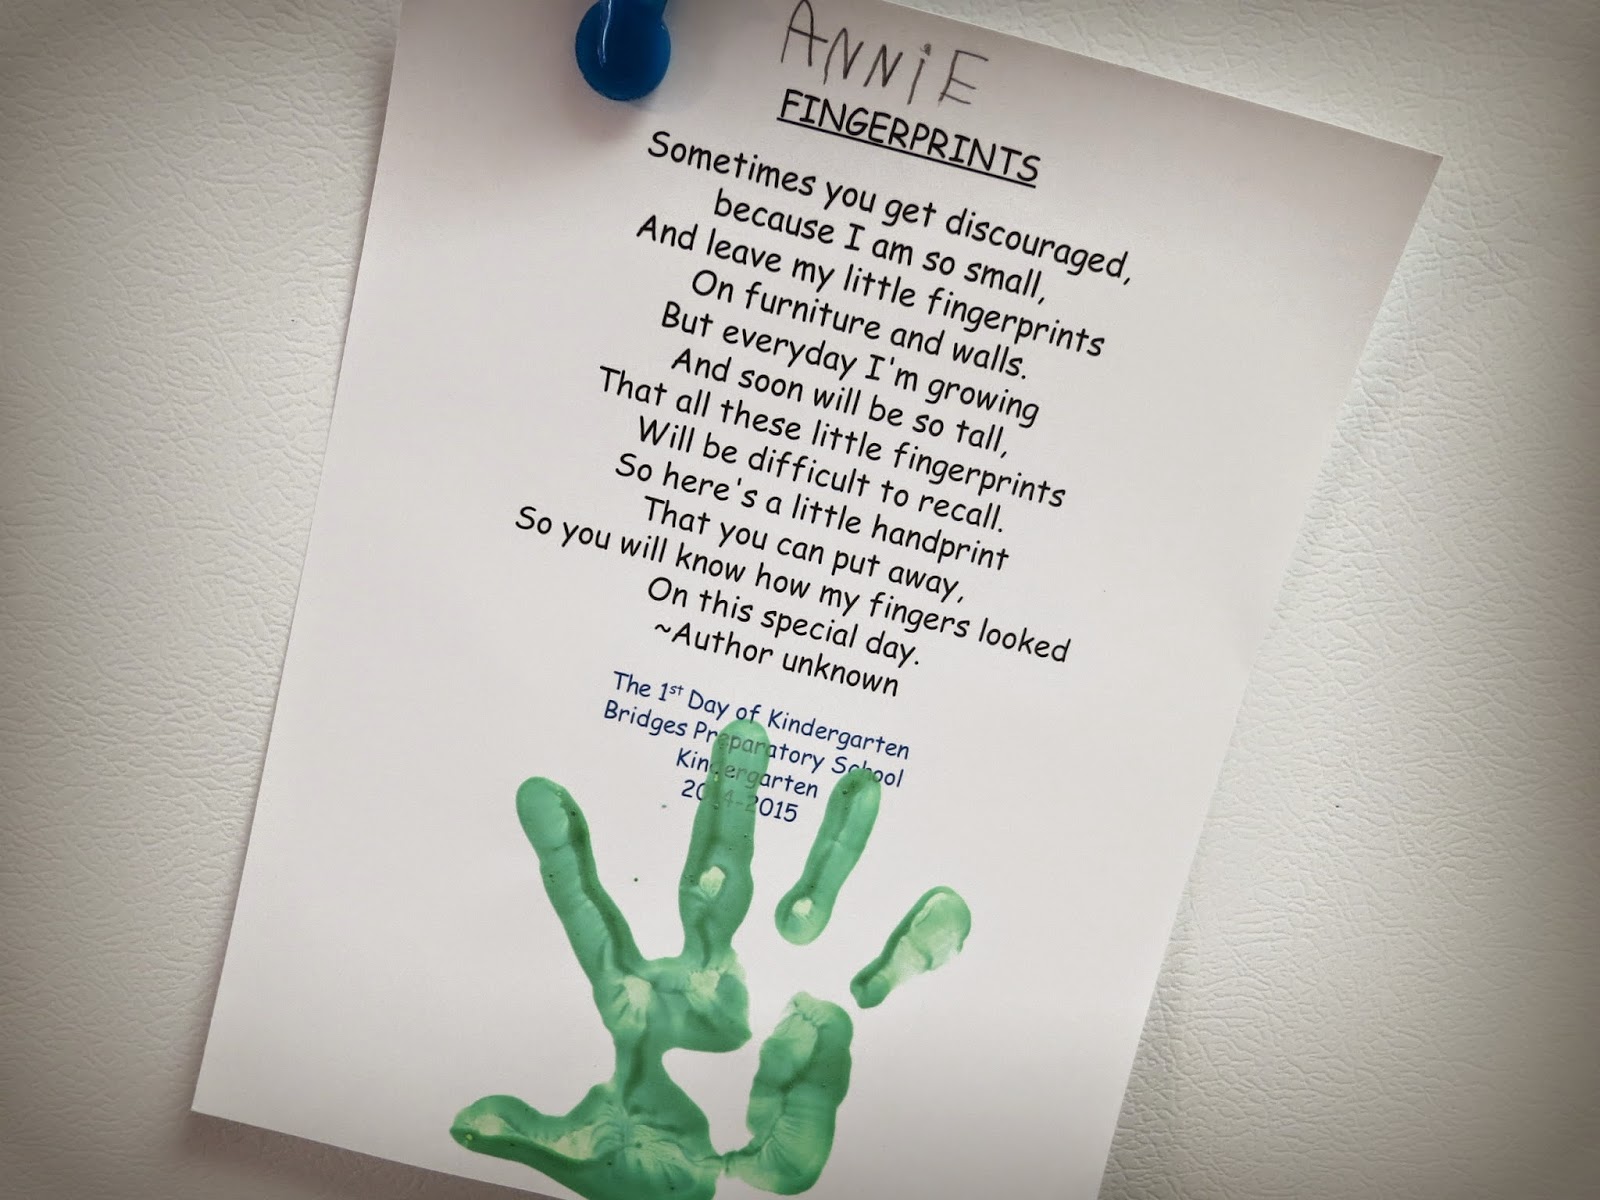 ANNiE
FINGERPRINTS
Sometimes you get discouraged,
because I am so small,
And leave my little fingerprints
On furniture and walls.
But everyday I'm growing
And soon will be so tall,
That all these little fingerprints
Will be difficult to recall.
So here's a little handprint
That you can put away,
So you will know how my fingers looked
On this special day.
~Author unknown
The 1st Day of Kindergarten
Bridges Preparatory School
Kindergarten
2014-2015